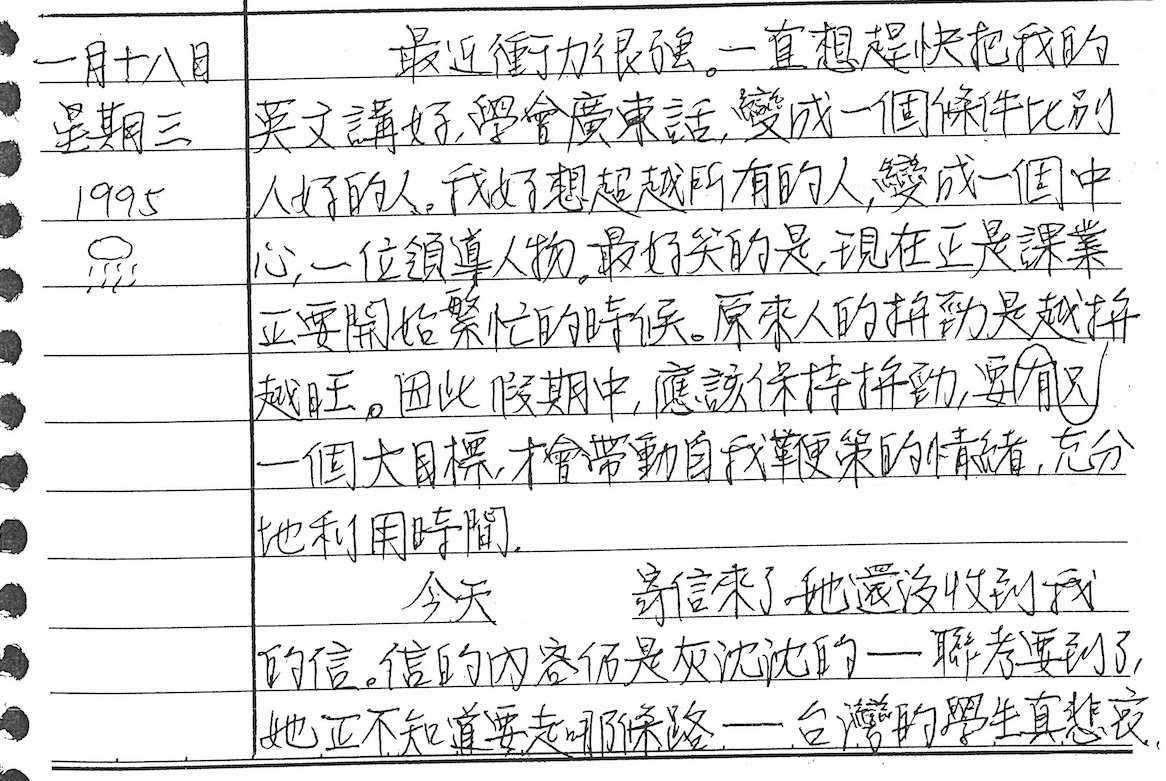 一月十八日
星期三
1995
最近衝力很強。一直想趕快把我的
英文講好,學會廣東話,變成一個條件比別
人好的人。我好想超越所有的人,變成一個中
心,一位領導人物。最好笑的是,現在正是課業
正要開始繁忙的時候。原來人的拚勁是越拚
越旺。因此假期中,應該保持拚勁,要有只
一個大目標,才會帶動自我鞭策的情緒,充分
地利用時間.
今天 寄信來了.她還沒收到我
的信。信的內容仍是灰沈沈的——聯考要到了,
她正不知道要走哪條路——台灣的學生真悲哀.